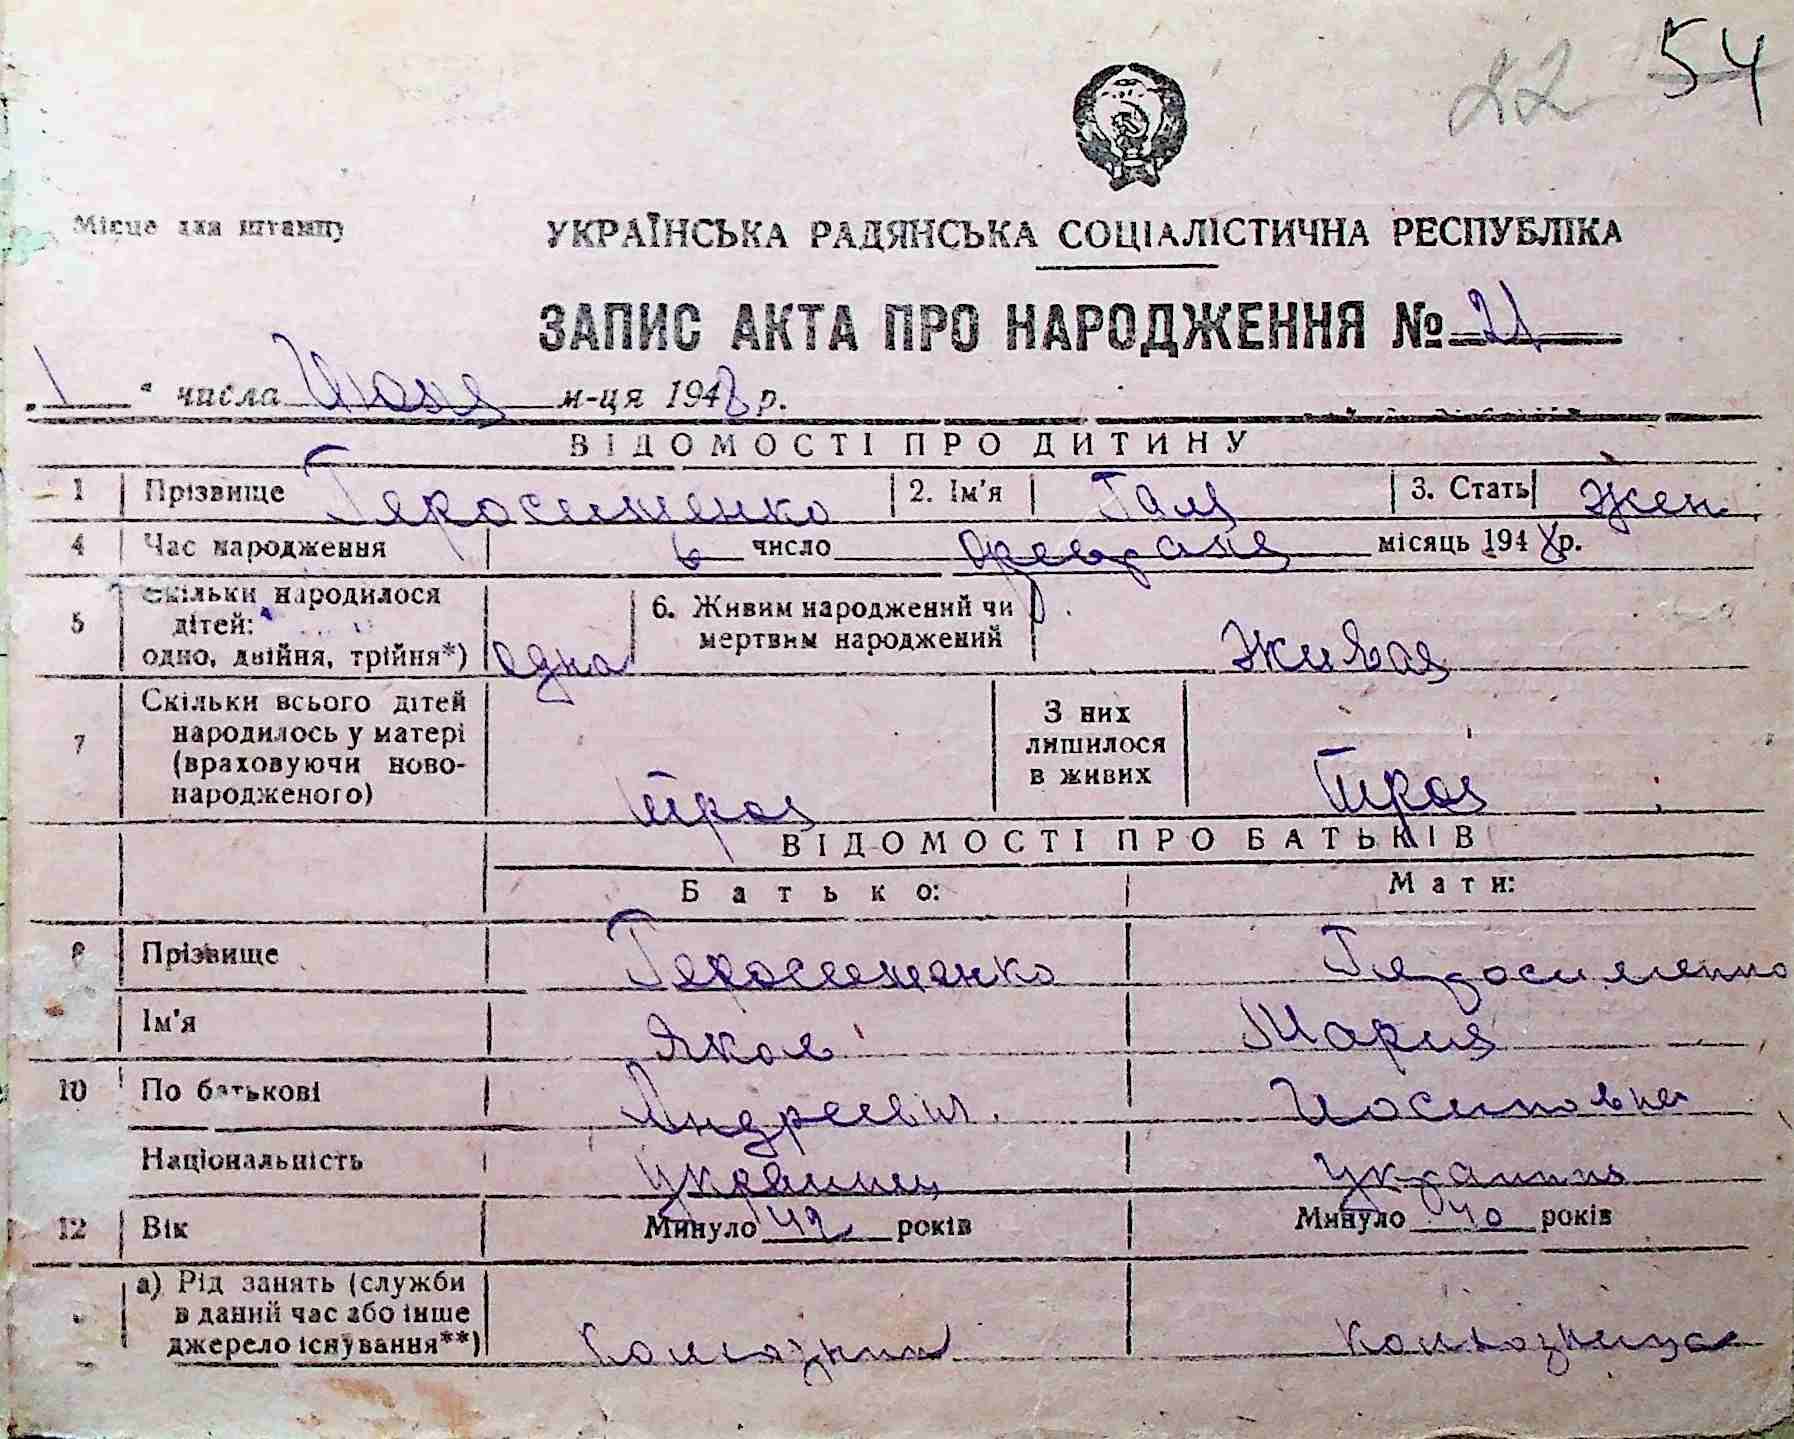 22 54
Місце для штампу
УКРАЇНСЬКА РАДЯНСЬКА СОЦІАЛІСТИЧНА РЕСПУБЛІКА
ЗАПИС АКТА ПРО НАРОДЖЕННЯ № 21
„1“ числа Июня м-ця 1948 р.
ВІДОМОСТІ ПРО ДИТИНУ
1 Прізвище Герасименко 2. Ім'я Галя 3. Стать Жен.
4 Час народження 6 число февраля місяць 1948 р.
5 Скільки народилося дітей: одно, двійня, трійня*) одна 6. Живим народжений чи мертвим народжений Живая
7 Скільки всього дітей народилось у матері (враховуючи новонародженого) трое З них лишилося в живих трое
ВІДОМОСТІ ПРО БАТЬКІВ
Батько: Мати:
8 Прізвище Герасименко Герасименко
Ім'я Яков Мария
10 По батькові Андреевич Иосиповна
Національність украинец украинка
12 Вік Минуло 42 років Минуло 40 років
а) Рід занять (служби в даний час або інше джерело існування**) Колхозник Колхозница